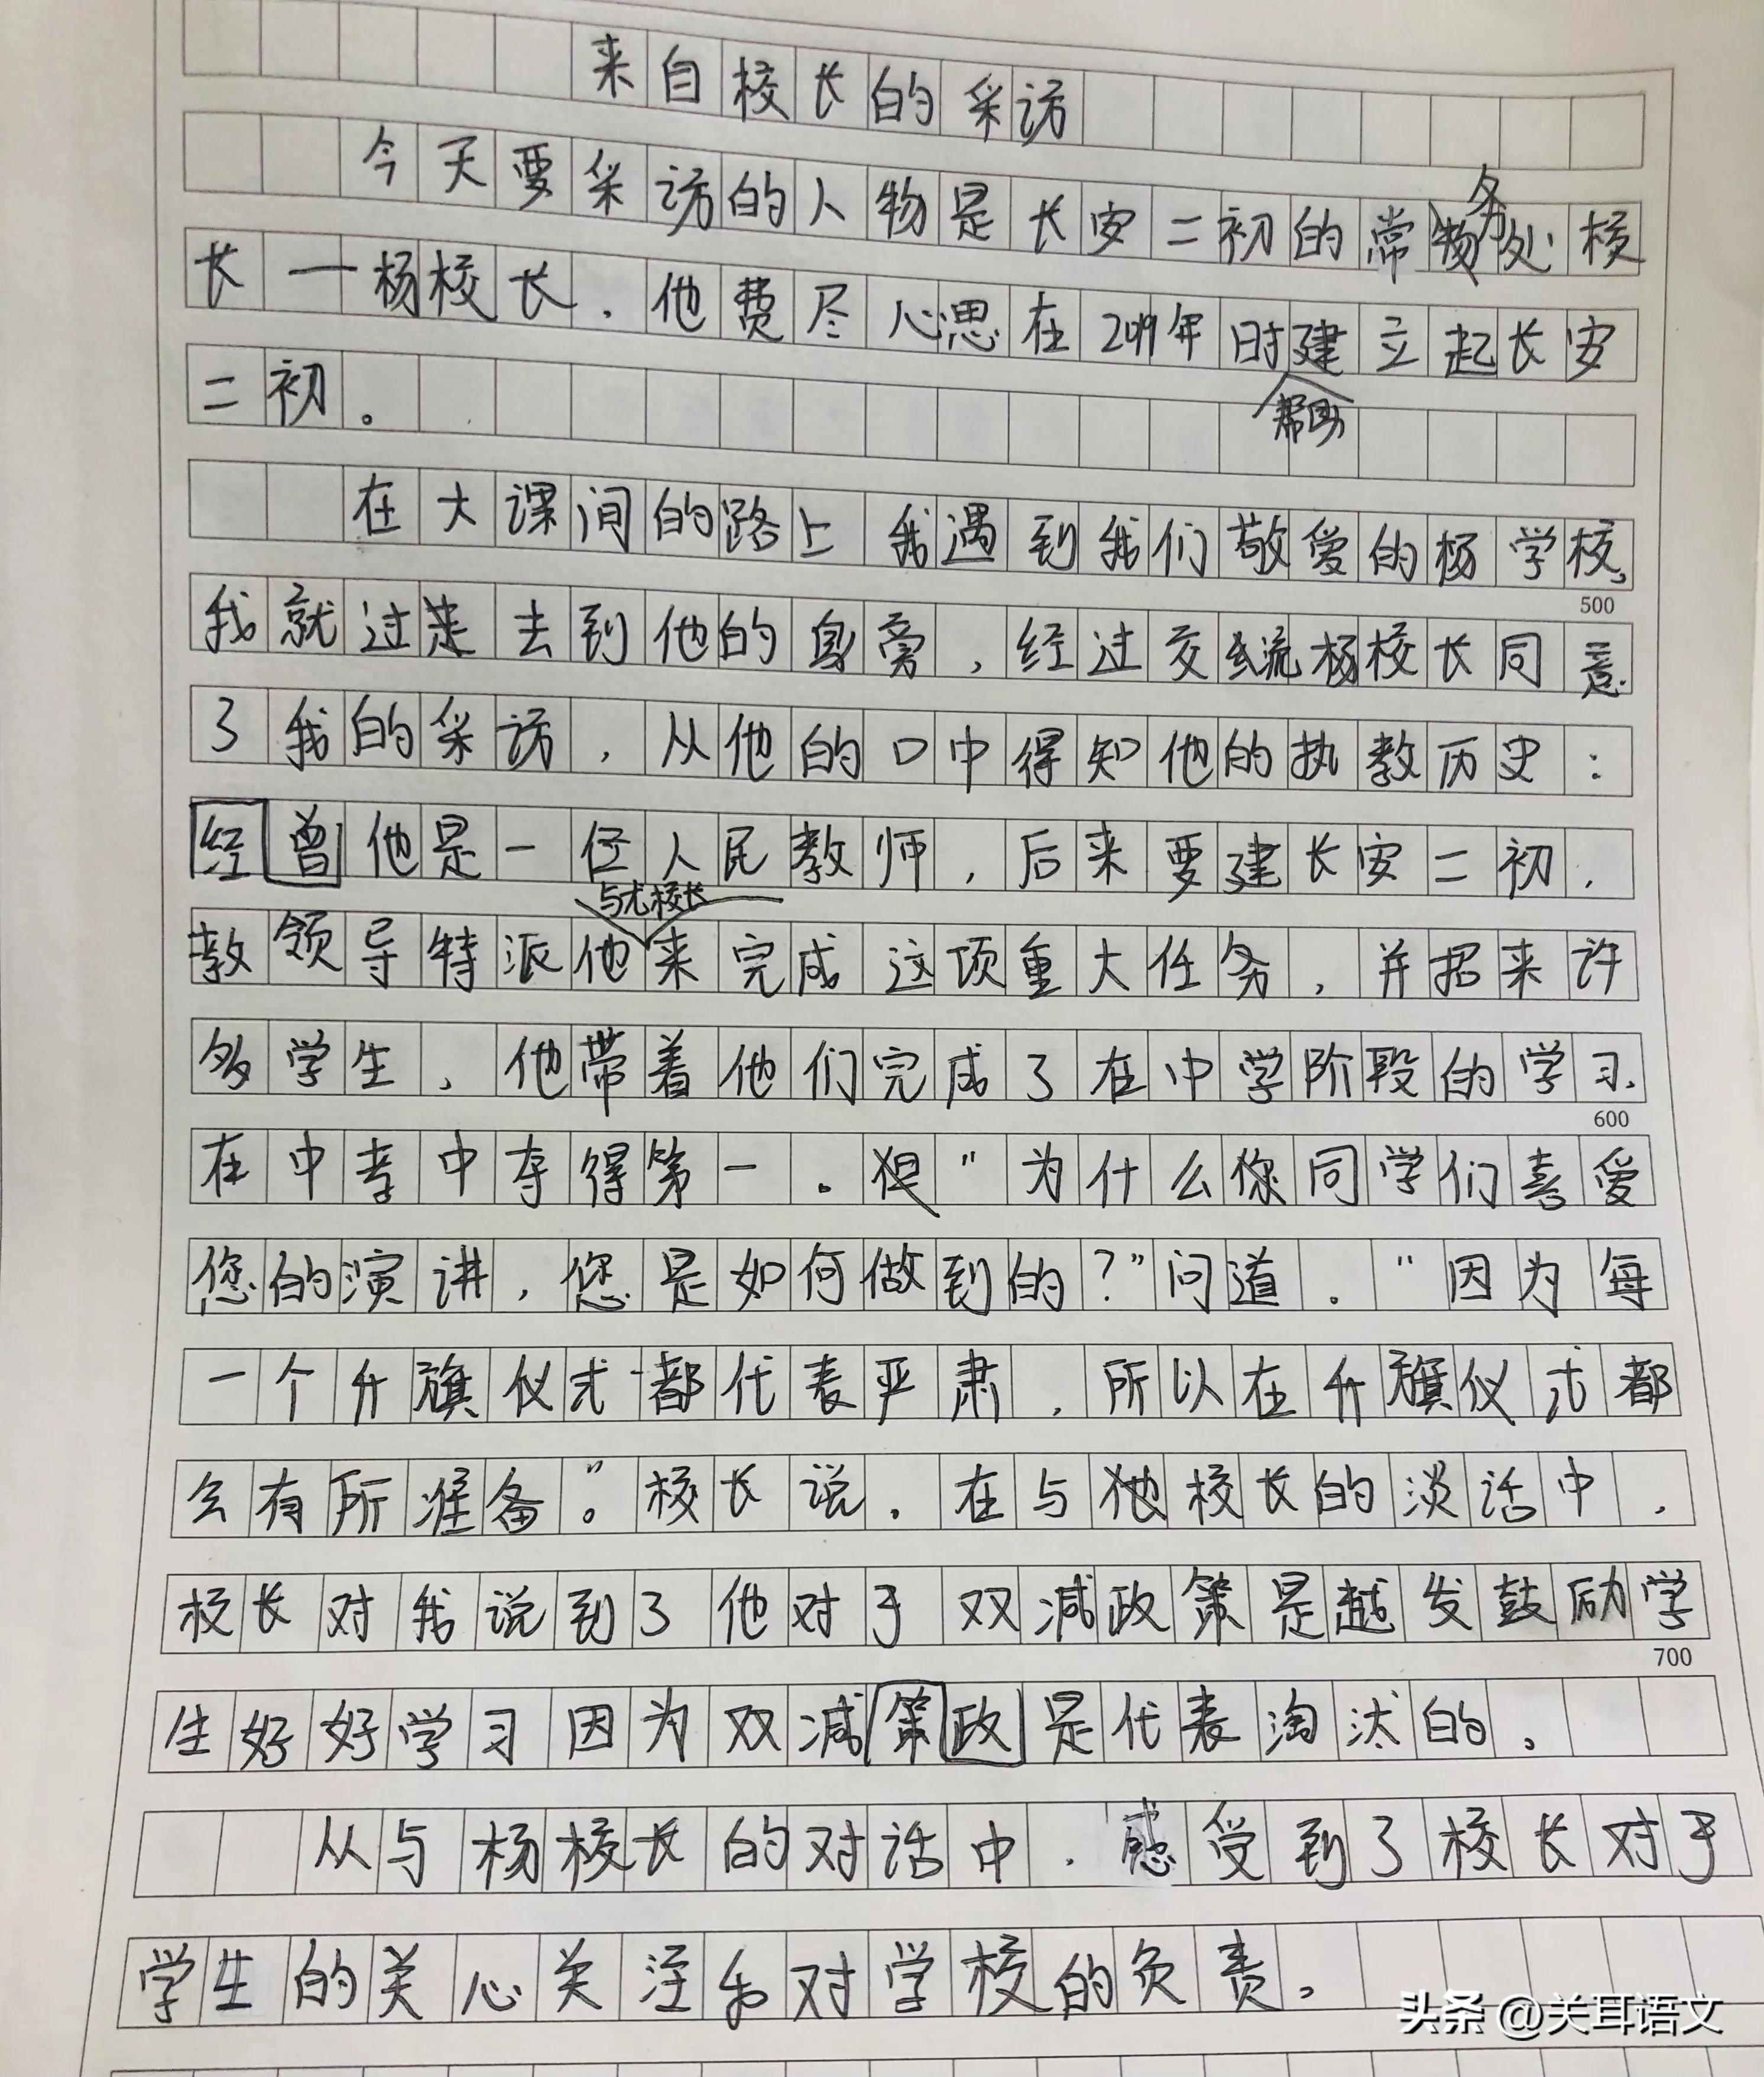 来自校长的采访
今天要采访的人物是长安二初的常务处校
长一杨校长，他费尽心思在2019年时帮助建立起长安
二初。
在大课间的路上我遇到我们敬爱的杨学校，
500
我就过走去到他的身旁，经过交流杨校长同意
了我的采访，从他的口中得知他的执教历史：
经曾他是一位人民教师，后来要建长安二初，
教领导特派他与尤校长来完成这项重大任务，并招来许
多学生，他带着他们完成了在中学阶段的学习，
600
在中考中夺得第一。"为什么你同学们喜爱
您的演讲，您是如何做到的？"问道。"因为每
一个升旗仪式都代表严肃，所以在升旗仪式都
会有所准备。"校长说。在与他校长的淡话中，
校长对我说到了他对于双减政策是越发鼓励学
700
生好好学习因为双减策政是代表淘汰的。
从与杨校长的对话中，感受到了校长对于
学生的关心关注和对学校的负责。
头条 @关耳语文